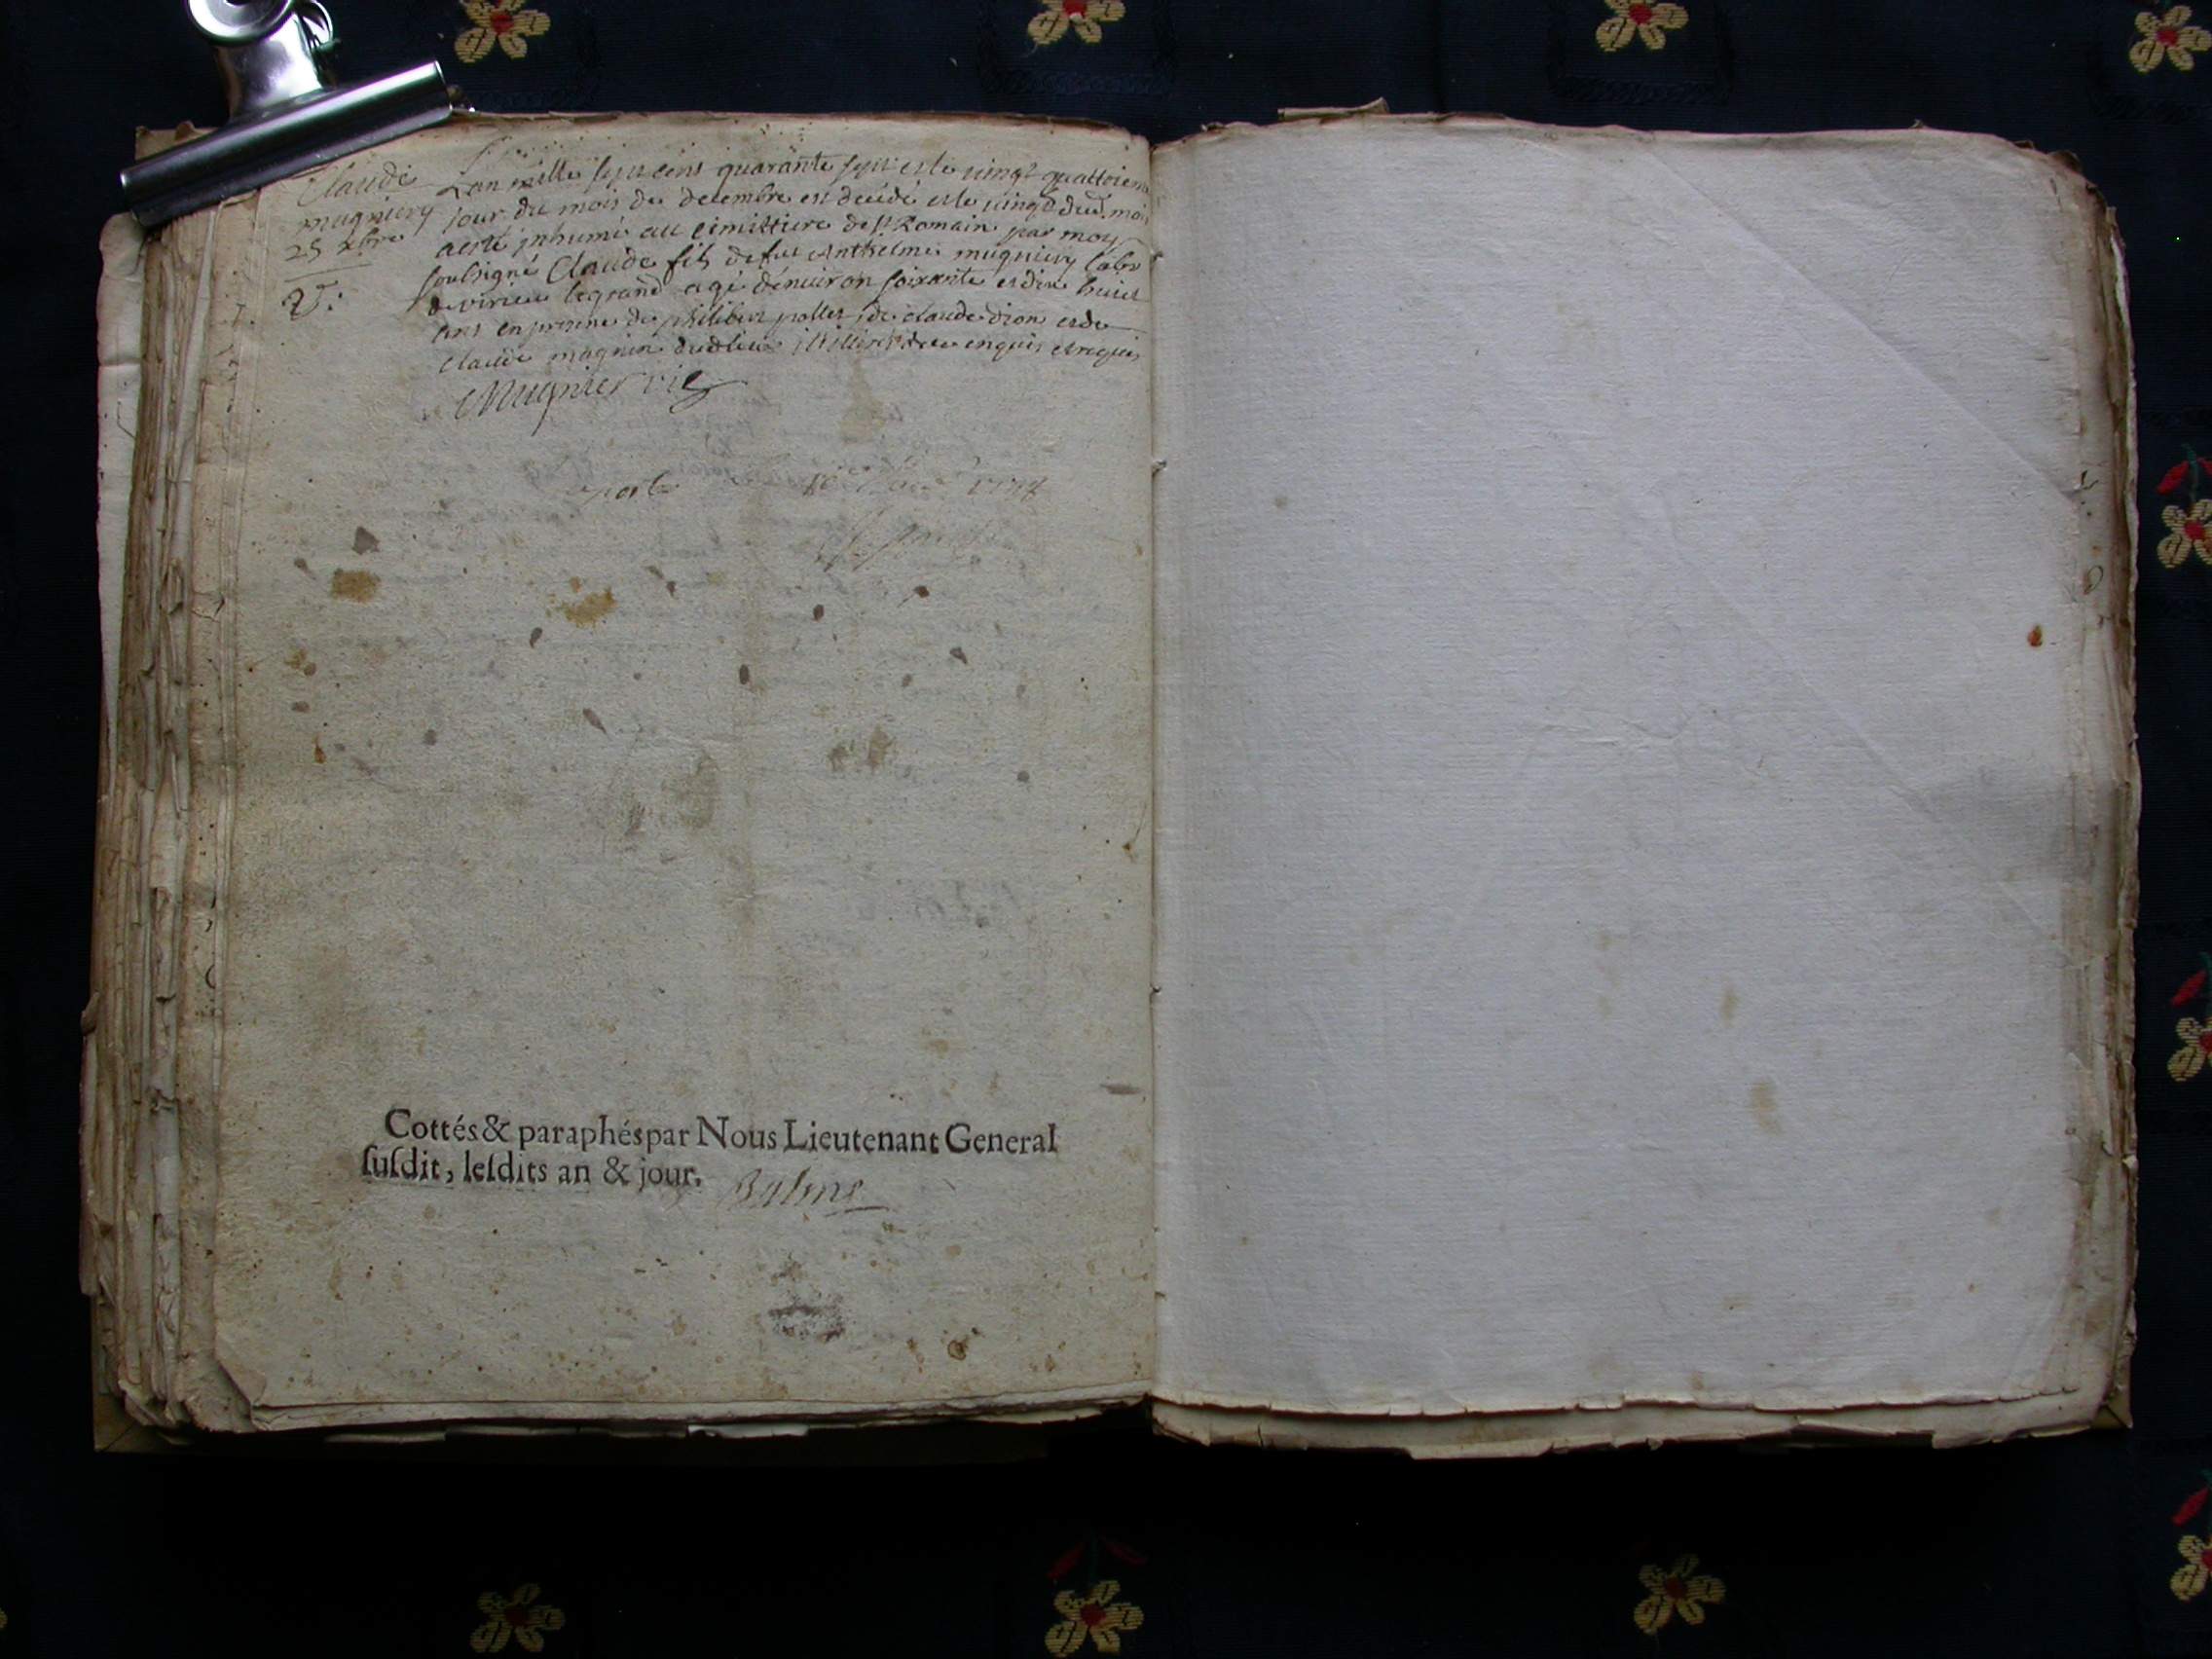 Claude
mugniery
25 xbre
L'an mille sept cens quarante sept et le vingt quattrieme
jour du mois de decembre est decedé et le vingt dud. mois
a esté inhumé au cimittiere de St Romain par moy
soubsigné Claude fils de fut Anthelme mugniery labr
de virieu le grand agé d'enuiron soixante et dix huict
ans en presence de philibert pollet, de claude dion et de
claude magnin dudlieu illitterés enquis et requis
Mugnier vic
Cottés & paraphés par Nous Lieutenant General
ſuſdit, leſdits an & jour.